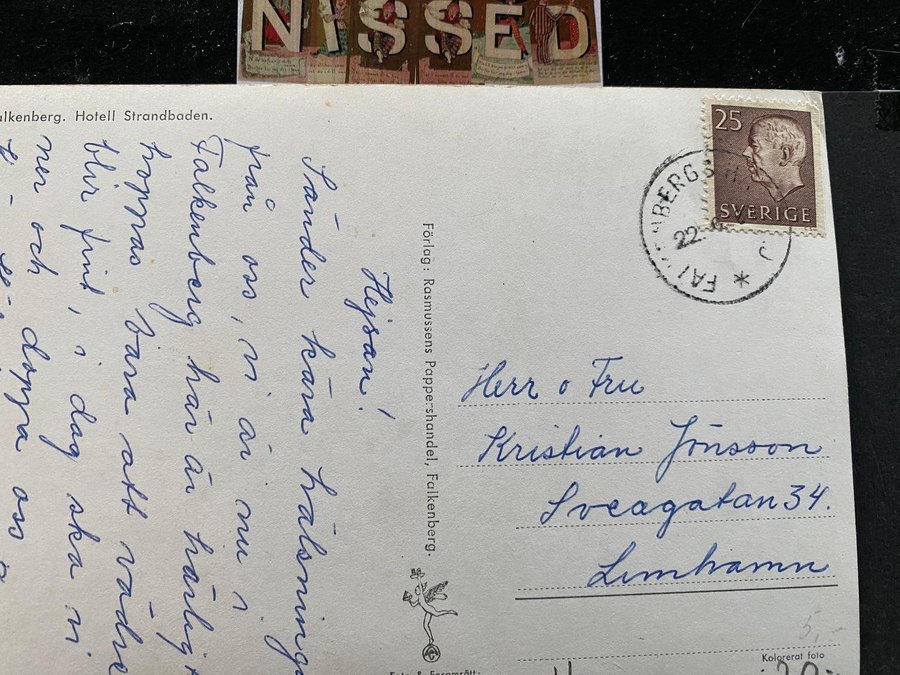 NISSED
alkenberg. Hotell Strandbaden.
Hejsan!
Sänder kära hälsninga
från oss, vi är nu i
Falkenberg här är härligt
hoppas bara att vädre
blir fint, i dag ska vi
ner och doppa oss
Förlag: Rasmussens Pappershandel, Falkenberg.
25
SVERIGE
BERGS
22.
FAL
*
Herr o Fru
Kristian Jönsson
Sveagatan 34.
Limhamn
5,-
Kolorerat foto